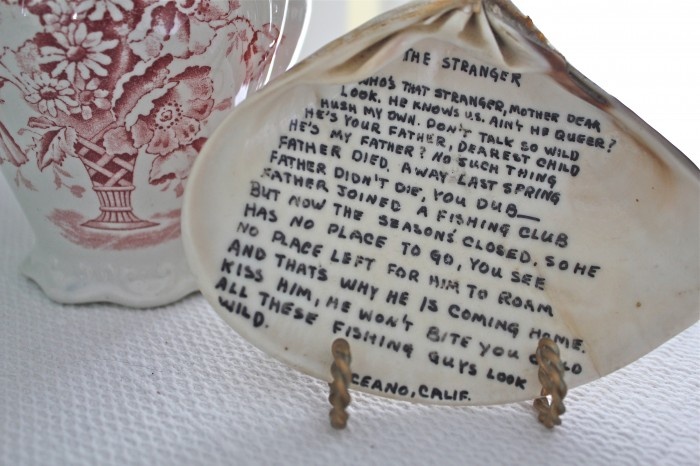 THE STRANGER
WHO'S THAT STRANGER, MOTHER DEAR
LOOK, HE KNOWS US. AIN'T HE QUEER?
HUSH MY OWN. DON'T TALK SO WILD
HE'S YOUR FATHER, DEAREST CHILD
HE'S MY FATHER? NO SUCH THING
FATHER DIED, AWAY LAST SPRING
FATHER DIDN'T DIE, YOU DUB—
FATHER JOINED A FISHING CLUB
BUT NOW THE SEASONS' CLOSED, SO HE
HAS NO PLACE TO GO, YOU SEE
NO PLACE LEFT FOR HIM TO ROAM
AND THAT'S WHY HE IS COMING HOME.
KISS HIM, HE WON'T BITE YOU CHILD
ALL THESE FISHING GUYS LOOK
WILD.
OCEANO, CALIF.